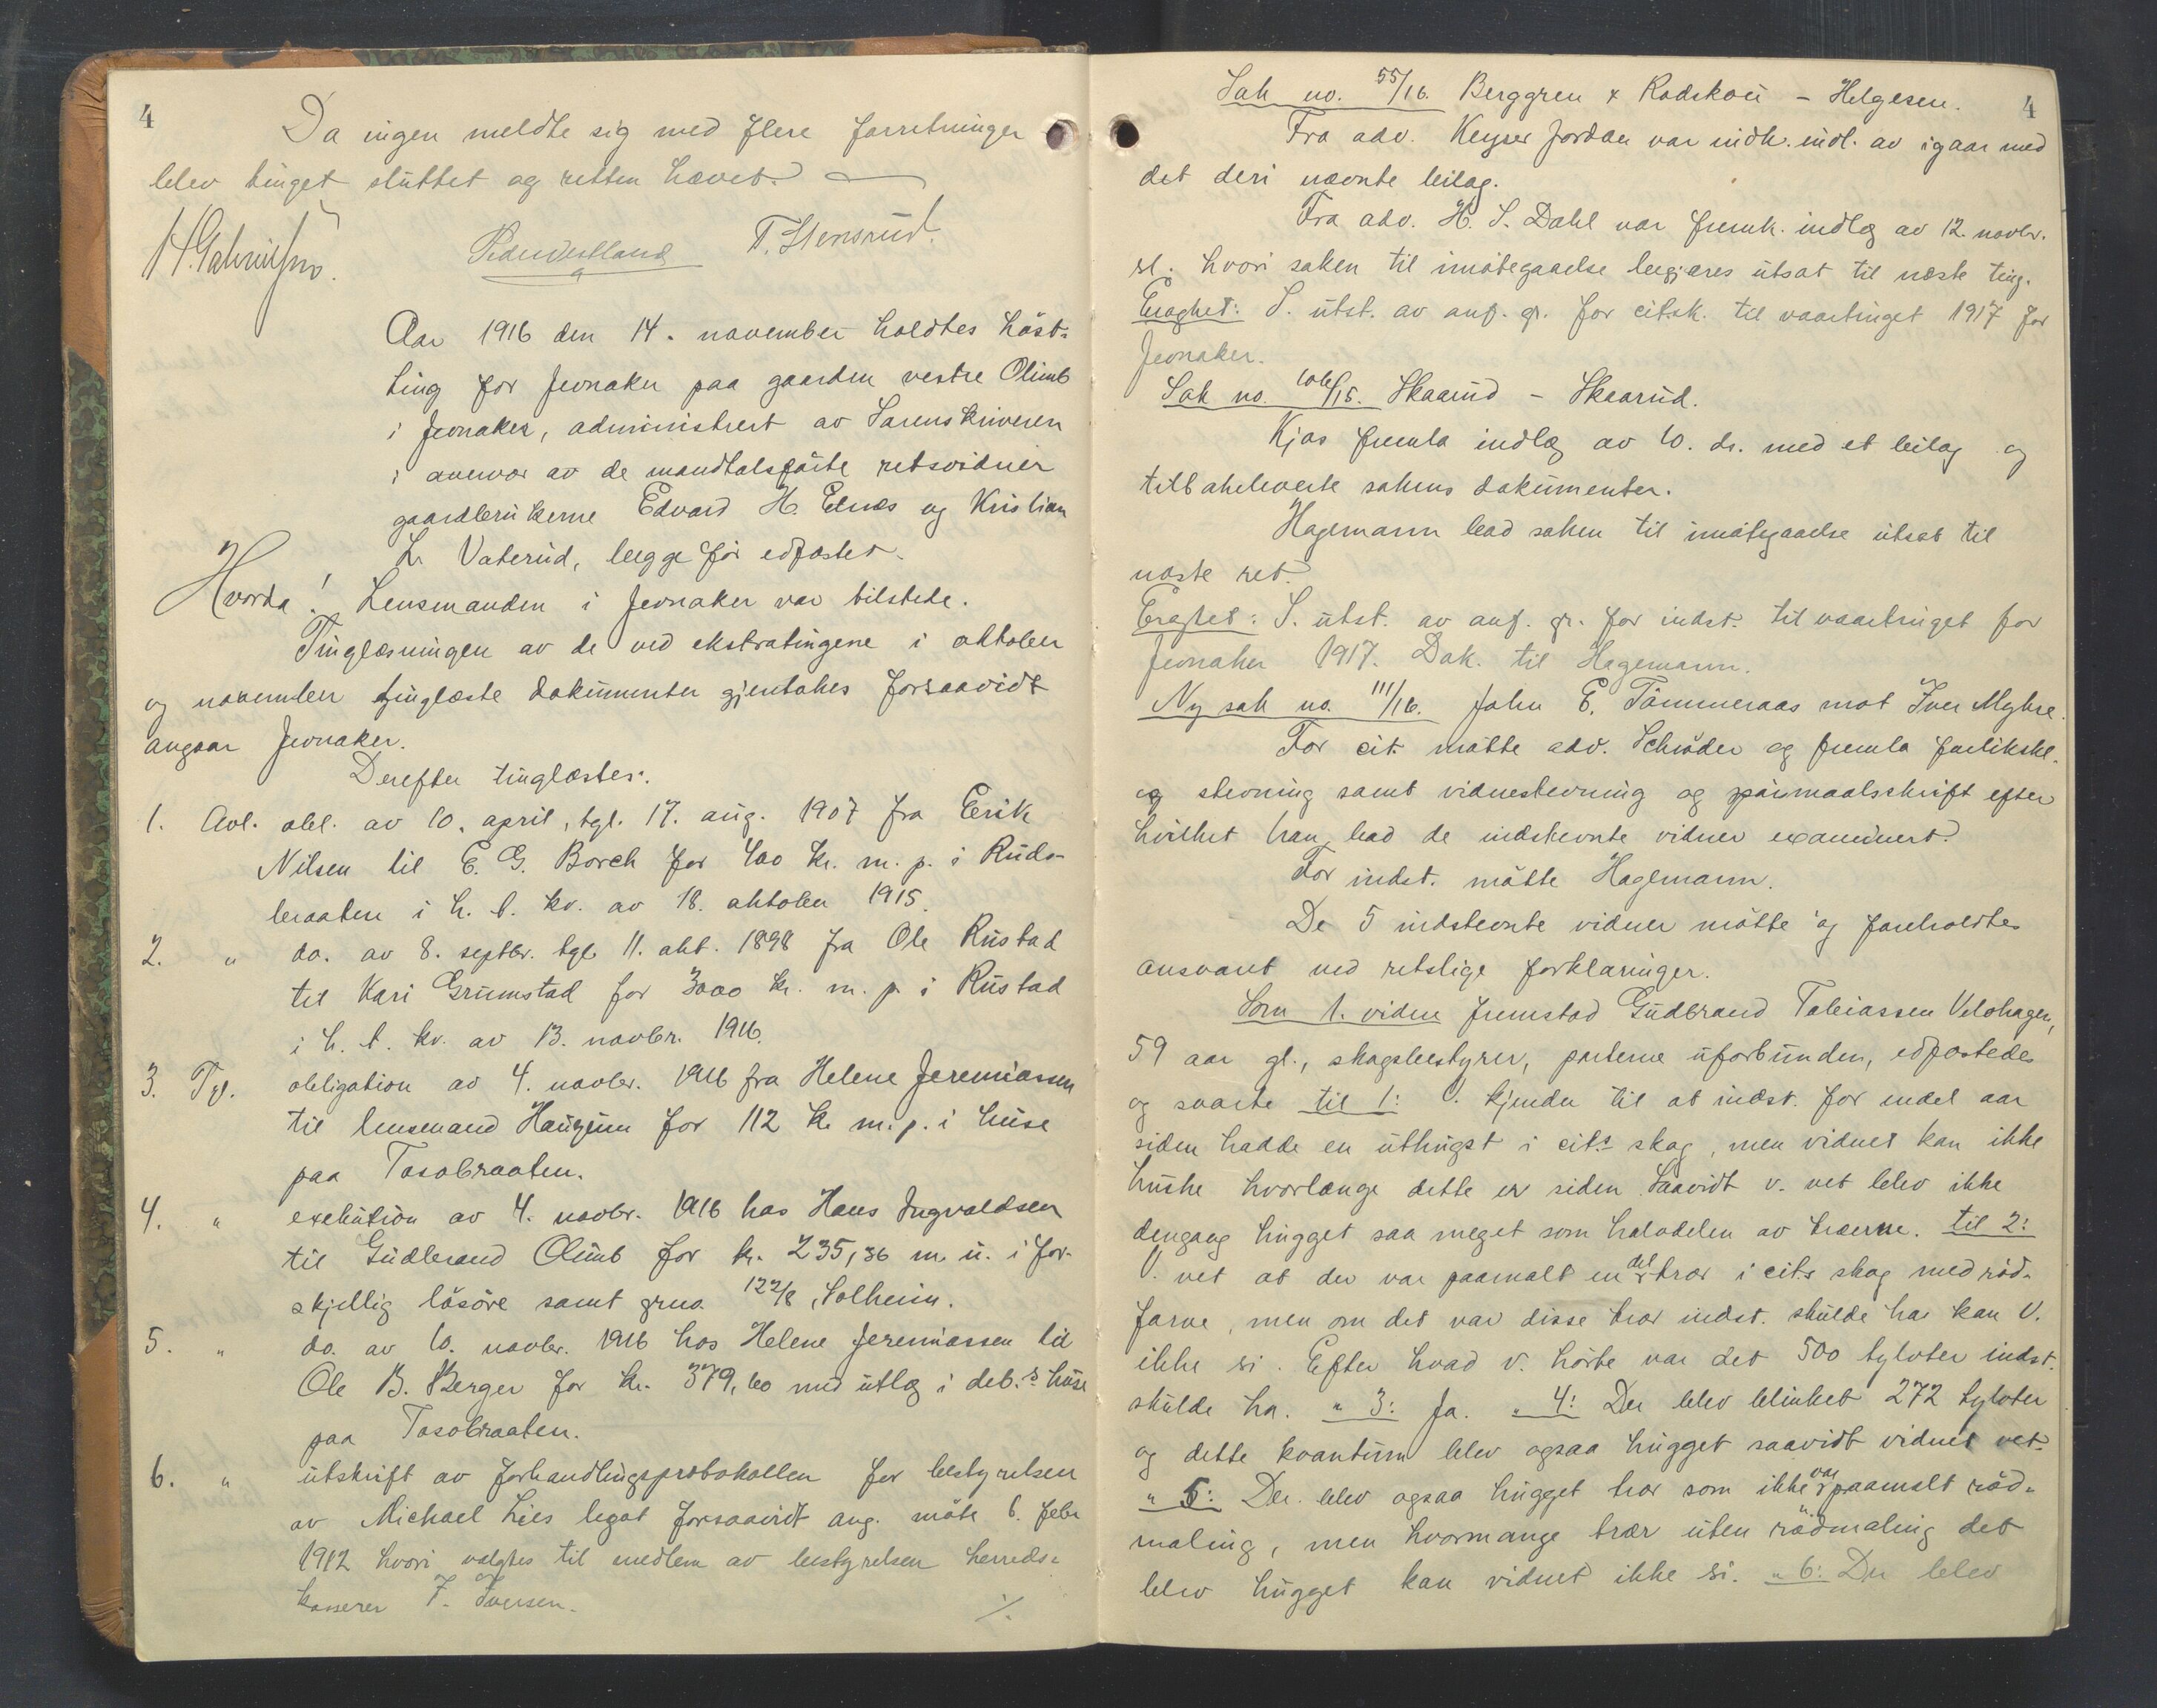 4
Da ingen meldte sig med flere forretninger
blev tinget sluttet og retten hævet.
T. Stensrud.
Aar 1916 den 14. november holdtes høst-
ting for Jevnaker paa gaarden vestre Olimb
i Jevnaker, administrert av Sorenskriveren
i overvær av de mandtalsførte retsvidner
gaardbrukerne Edvard H. Elnæs og Kristian
L. Vaterud, begge før edfæstet.
Hvorda! Lensmanden i Jevnaker var tilstede.
Tinglæsningen av de ved ekstratingene i oktober
og november tinglæste dokumenter gjentakes forsaavidt
angaar Jevnaker.
Derefter tinglæstes:
1. Avl. obl. av 10. april, tgl. 17. aug. 1907 fra Erik
Nilsen til E. G. Borch for 400 kr. m. p. i Ruds-
braaten i h. t. kv. av 18. oktober 1915.
2. " do. av 8. septbr. tgl. 11. okt. 1898 fra Ole Rustad
til Kari Grumstad for 3000 kr. m. p. i Rustad
i h. t. kv. av 13. novbr. 1916.
3. Tgl. obligation av 4. novbr. 1916 fra Helene Jeremiassen
til lensmand Haugum for 112 kr. m. p. i huse
paa Tosobraaten.
4. " exekution av 4. novbr. 1916 hos Hans Ingvaldsen
til Gudbrand Olimb for kr. 235,36 m. u. i for-
skjellig løsøre samt grno 122/8, Solheim.
5. " do. av 10. novbr. 1916 hos Helene Jeremiassen til
Ole B. Berger for kr. 379,60 med utlæg i deb.s huse
paa Tosobraaten.
6. " utskrift av forhandlingsprotokollen for bestyrelsen
av Michael Lies legat forsaavidt ang. møte 6. febr
1912 hvori valgtes til medlem av bestyrelsen herreds-
kasserer F. Iversen.
./.
Sak no. 55/16. Berggren & Rodskou - Helgesen. 4
Fra adv. Keyser Jordan var indk. indl. av igaar med
det deri nævnte bilag.
Fra adv. H. S. Dahl var fremk. indlæg av 12. novbr.
sl. hvori saken til imøtegaaelse begjæres utsat til næste ting.
Eragtet: S. utst. av anf. gr. for citsk. til vaartinget 1917 for
Jevnaker.
Sak no. 106/15. Skaarud - Skaarud.
Kjos fremla indlæg av 10. ds. med et bilag og
tilbakeleverte sakens dokumenter.
Hagemann bad saken til imøtegaaelse utsat til
næste ret.
Eragtet: S. utst. av anf. gr. for indst. til vaartinget for
Jevnaker 1917. Dok. til Hagemann.
Ny sak no. 111/16. John E. Tømmeraas mot Iver Myhre.
For cit. møtte adv. Schrøder og fremla forlikskl.
og stevning samt vidnestevning og spørsmaalsskrift efter
hvilket han bad de indstevnte vidner examinert.
For indst. møtte Hagemann.
De 5 indstevnte vidner møtte og foreholdtes
ansvaret ved retslige forklaringer.
Som 1. vidne fremstod Gudbrand Tobiassen Velohagen,
59 aar gl., skogsbestyrer, parterne uforbunden, edfæstedes
og svarte til 1: V. kjender til at indst. for endel aar
siden hadde en uthugst i cit.s skog, men vidnet kan ikke
huske hvorlænge dette er siden. Saavidt v. vet blev ikke
dengang hugget saa meget som halvdelen av trærne. til 2:
V. vet at der var paamalt en del trær i cits skog med rød-
farve, men om det var disse trær indst. skulde ha kan V.
ikke si. Efter hvad v. hørte var det 500 tylvter indst.
skulde ha. " 3: Ja. " 4: Der blev blinket 272 tylvter
og dette kvantum blev ogsaa hugget saavidt vidnet vet.
" 5: Der blev ogsaa hugget trær som ikke var paamalt rød-
maling, men hvormange trær uten rødmaling det
blev hugget kan vidnet ikke si. " 6: Der blev